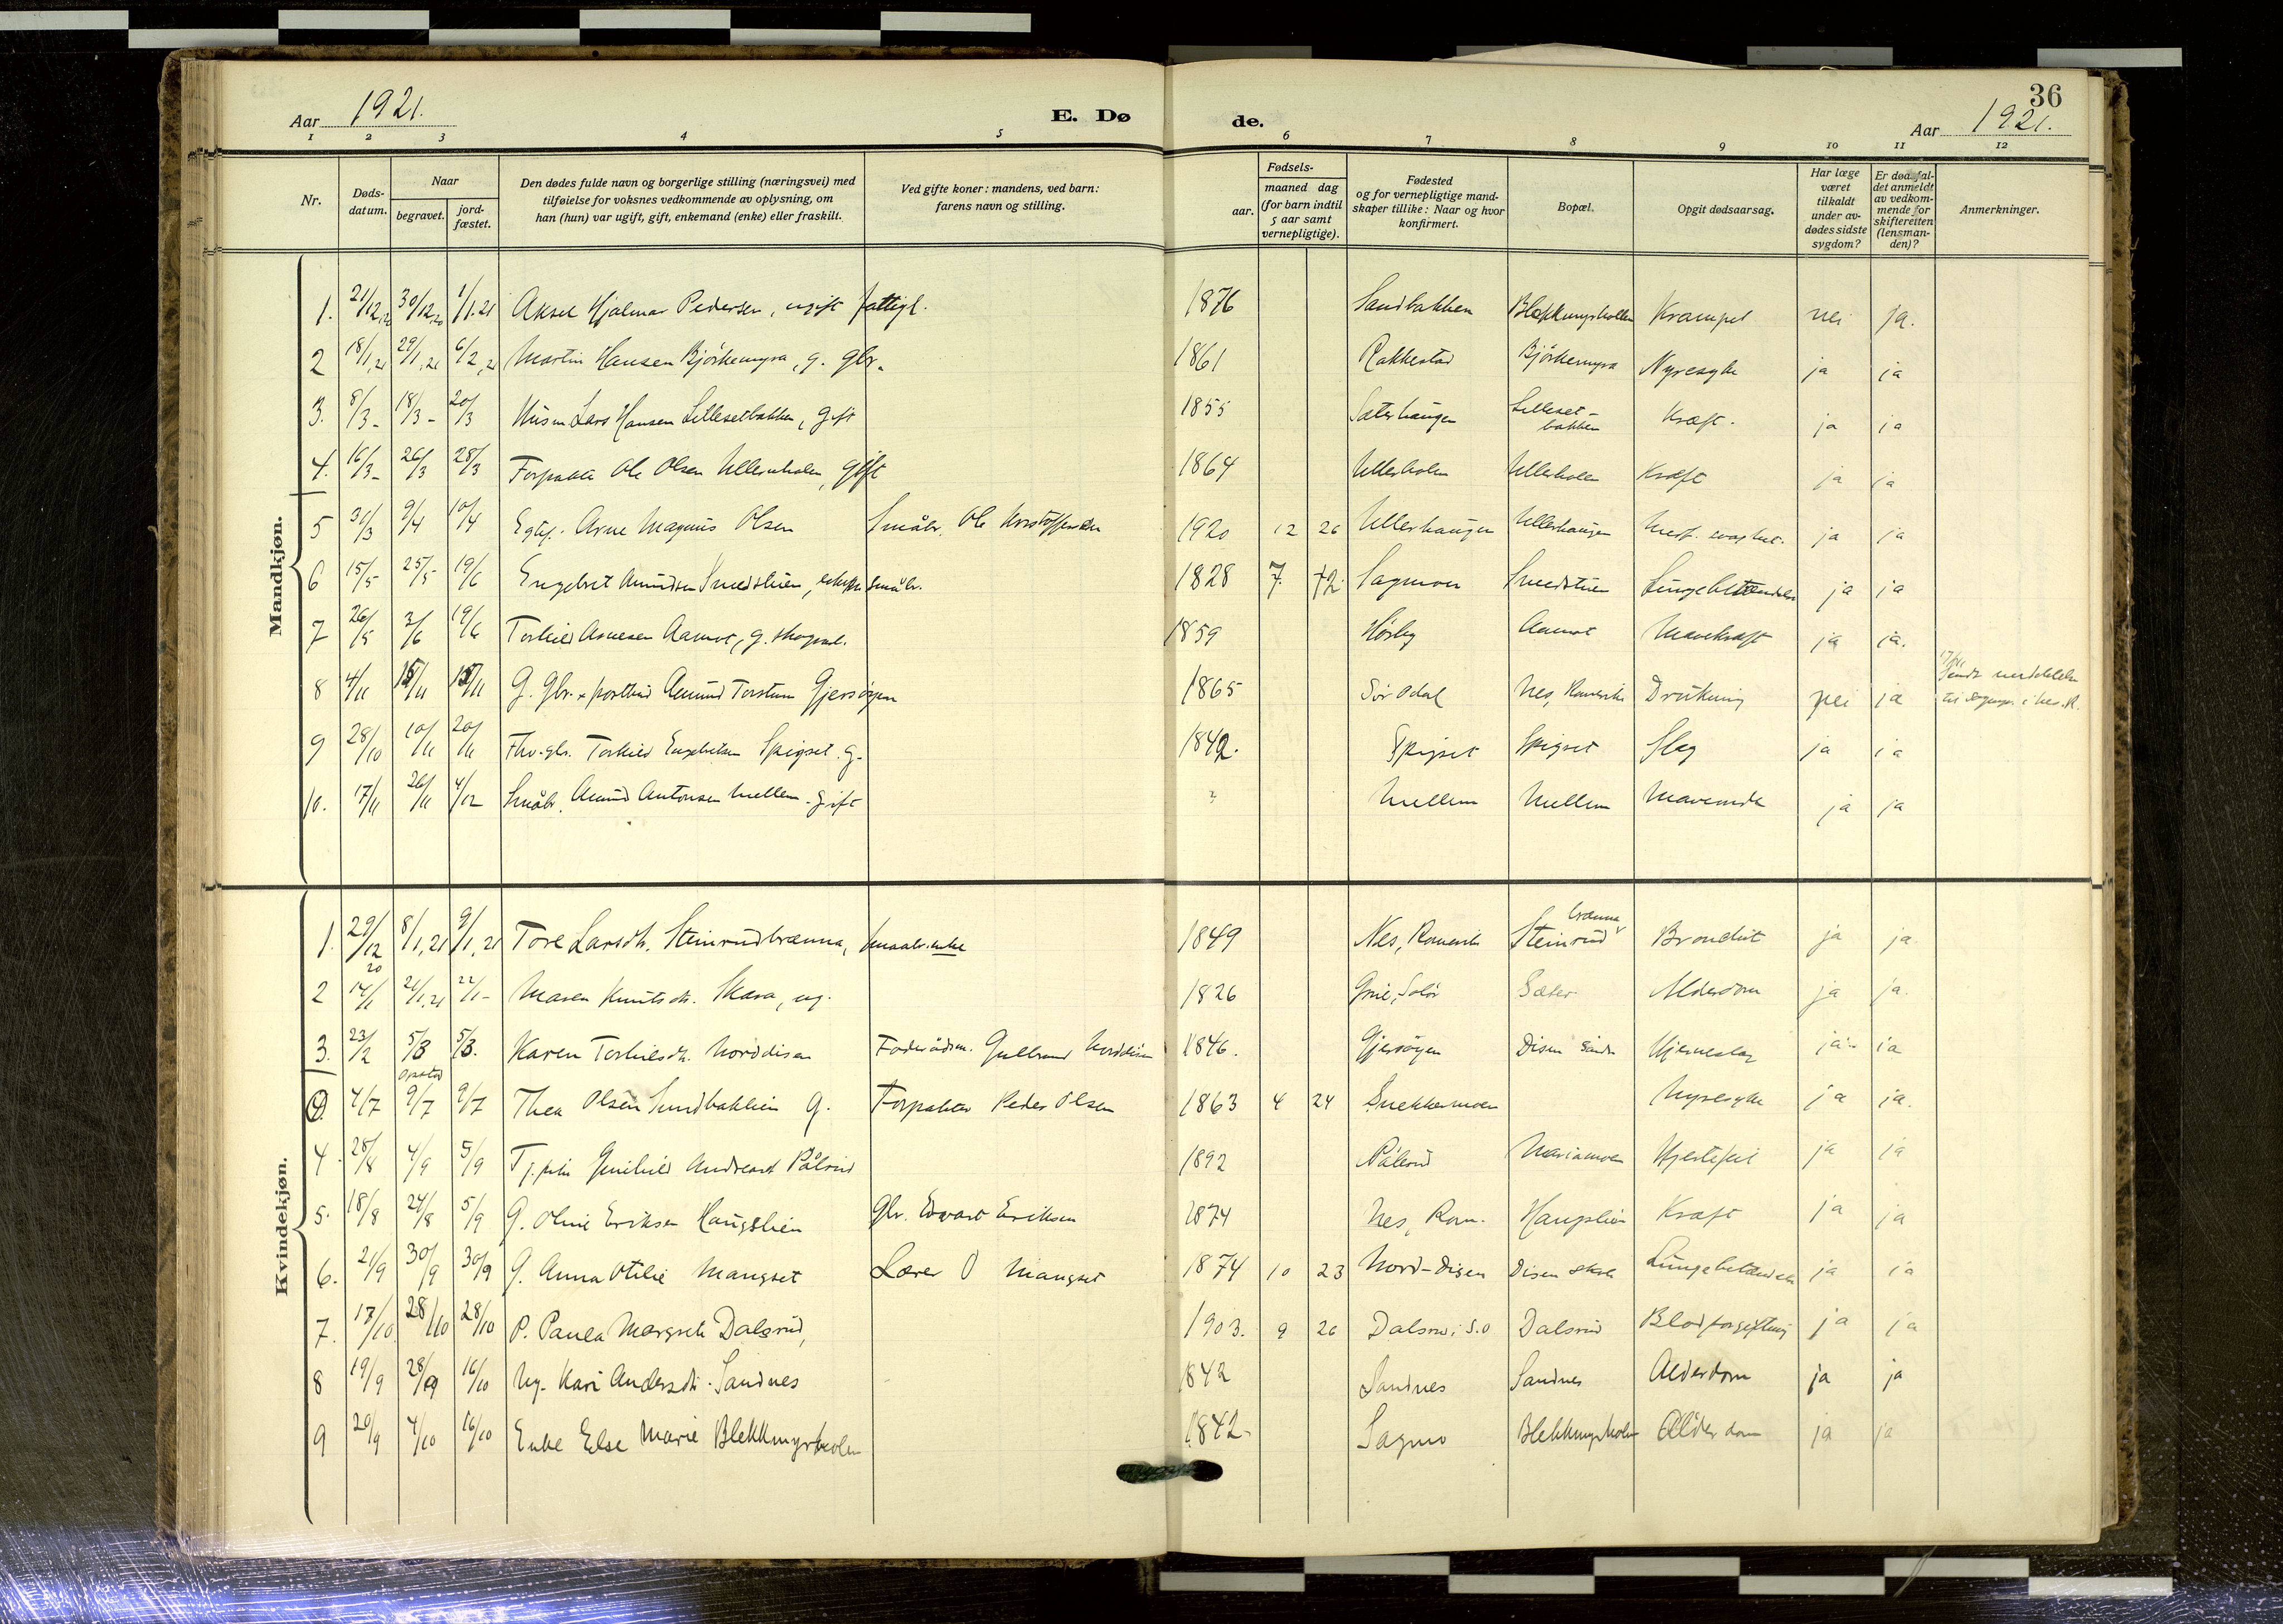 36
Aar 1921.
E. Dø
de.
Aar 1921.
1 2 3 4 5 6 7 8 9 10 11 12
Nr.
Døds-
datum.
Naar
begravet.
jord-
fæstet.
Den dødes fulde navn og borgerlige stilling (næringsvei) med
tilføielse for voksnes vedkommende av oplysning, om
han (hun) var ugift, gift, enkemand (enke) eller fraskilt.
Ved gifte koner: mandens, ved barn:
farens navn og stilling.
Fødsels-
aar.
maaned dag
(for barn indtil
5 aar samt
vernepligtige).
Fødested
og for vernepligtige mand-
skaper tillike: Naar og hvor
konfirmert.
Bopæl.
Opgit dødsaarsag.
Har læge
været
tilkaldt
under av-
dødes sidste
sygdom?
Er dødsfal-
det anmeldt
av vedkom-
mende for
skifteretten
(lensman-
den)?
Anmerkninger.
Mandkjøn.
1. 21/12,20 30/12,20 1/1.21 Aksel Hjalmar Pedersen, ugift fattigl. 1876 Sandbakken Blekkmyrholen Krampe nei ja.
2 18/1,21 29/1,21 6/2,21 Martin Hansen Bjørkemyra, g. gbr. 1861 Rakkestad Bjørkemyra Nyresyke ja ja
3. 8/3- 18/3- 20/3 Husm Lars Hansen Lillesetbakken, gift 1855 Sæterhaugen Lilleset-
bakken Kræft. ja ja
4. 16/3- 26/3 28/3 Forpakter Ole Olsen Ullernholen, gift 1864 Ullerholen Ullerholen Kræft ja ja
5 31/3 9/4 10/4 Egtef. Arne Magnus Olsen Småbr. Ole Kristoffersen 1920 12 26 Ullerhaugen Ullerhaugen ja ja
6 15/5 25/5 19/6 Engebret Amundsen Smedstuen, småbr. 1828 7. 12 Sagmoen Smedstuen Lungebetændelse ja ja
7 26/5 3/6 19/6 Torkild Arnesen Aamot, g. 1859 Hørby Aamot Mavekræft ja ja.
8 4/11 15/11 15/11 G. Gbr. x postbud Amund Torstens Gjersøyen 1865 Sør Odal Nes, Romerike Drukning nei ja 17/11
Sendt meddelelse
9 28/10 10/11 20/11 Fhv. gbr. Torkild Engebretsen Spigset. g. 1842. Spigset Spigset Slag ja ja
10. 17/11 26/11 4/12 Småbr. Amund Antonsen Mellem. gift ? Mellem Mellem ja ja
Kvindekjøn.
1. 29/12 20 8/1,21 9/1,21 Tore Larsdt. Steinrudbrænna, smaabr.enke 1849 Nes, Romerike Steinrud brænna Bronchit ja ja
2 14/1 21/1,21 22/1- Maren Knutsdt. Skara, ug. 1826 Grue, Solør Sæter Alderdom ja ja.
3. 23/2 5/3 5/3. Karen Torkilsdt. Norddisen Føderådsm. Gulbrand Norddisen 1846. Gjersøyen Disen Hjerneslag ja ja
9. 4/7 9/7 9/7 Thea Olsen Sundbakken g. Forpakter Peder Olsen 1863 4 24 Snekkermoen Nyresyke ja ja.
4. 28/8 4/9 5/9 Gunhild Andreasdt Pålsrud 1892 Pålsrud Mariamoen Hjertefeil ja ja
5. 18/8 24/8 5/9 G. Oline Eriksen Haugslien Gbr. Edvart Eriksen 1874 Nes, Rom. Haugslien Kræft ja ja
6. 21/9 30/9 30/9 G. Anna Otilie Mangset Lærer O Mangset 1874 10 23 Nord-Disen Disen skole Lungebetændelse ja ja
7. 17/10 28/10 28/10 P. Paula Margrete Dalsrud, 1903. 9 26 Dalsrud i S.O Dalsrud Blodforgiftning ja ja
8 19/9 28/9 16/10 Ug. Kari Andersdt. Sandnes 1842 Sandnes Sandnes Alderdom ja ja
9 20/9 4/10 16/10 Enke Else Marie Blekkmyrholen 1842- Sagmo Blekkmyrholen Alderdom ja ja